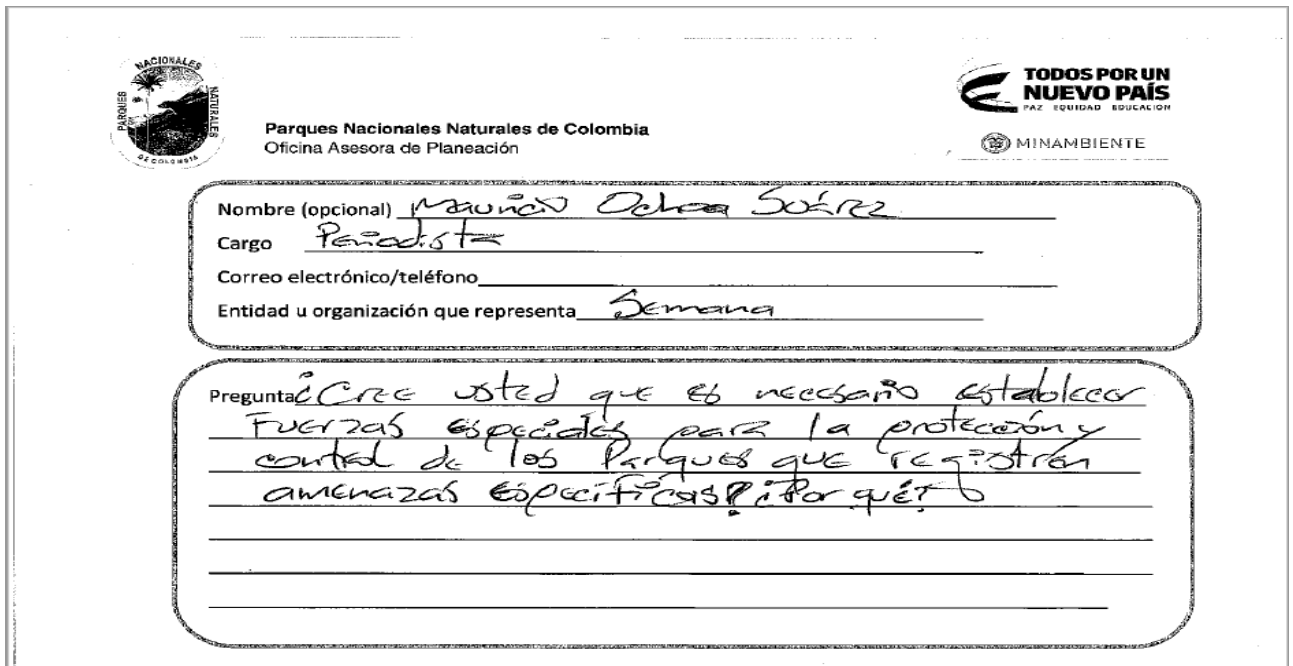 PARQUES NACIONALES NATURALES
DE COLOMBIA
Parques Nacionales Naturales de Colombia
Oficina Asesora de Planeación
TODOS POR UN
NUEVO PAÍS
PAZ EQUIDAD EDUCACIÓN
MINAMBIENTE
Nombre (opcional) Mauricio Ochoa Suárez
Cargo Periodista
Correo electrónico/teléfono
Entidad u organización que representa Semana
Pregunta ¿Cree usted que es necesario establecer
Fuerzas especiales para la protección y
control de los Parques que registran
amenazas específicas? ¿Por qué?